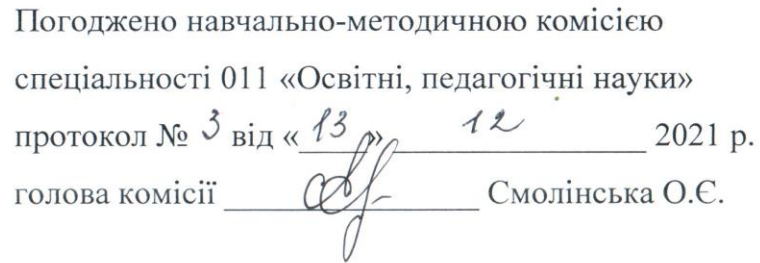 Погоджено навчально-методичною комісією
спеціальності 011 «Освітні, педагогічні науки»
протокол № 3 від «13» 12 2021 р.
голова комісії Смолінська О.Є.